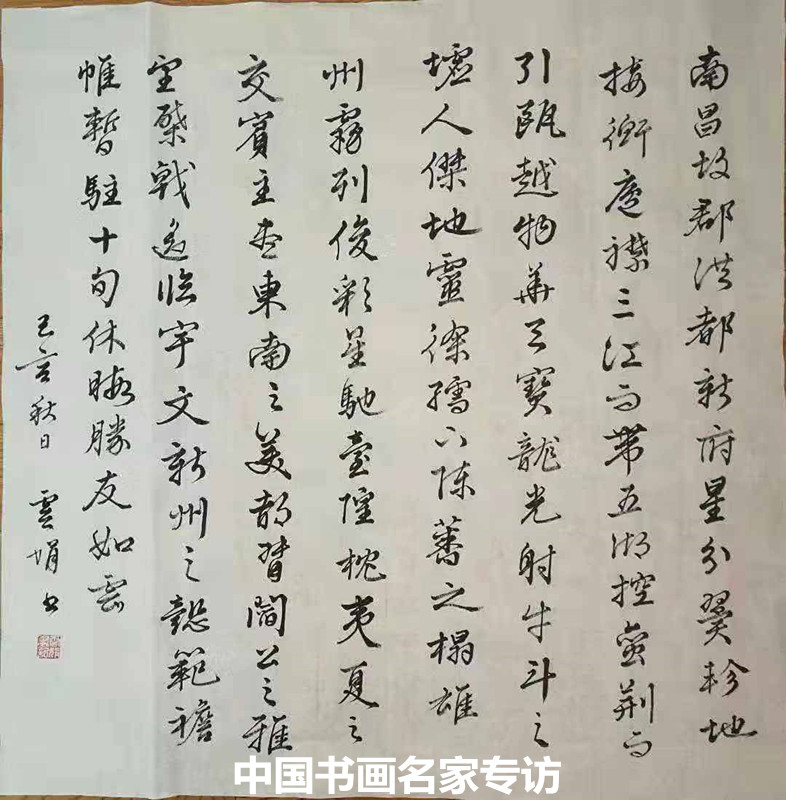 南昌故郡洪都新府星分翼軫地
接衡廬襟三江而帶五湖控蠻荆而
引甌越物華天寶龍光射牛斗之
墟人傑地靈徐孺下陳蕃之榻雄
州霧列俊彩星馳臺隍枕夷夏之
交賓主盡東南之美都督閻公之雅
望棨戟遙臨宇文新州之懿範襜
帷暫駐十旬休暇勝友如雲
己亥秋日 雲娟书
中国书画名家专访